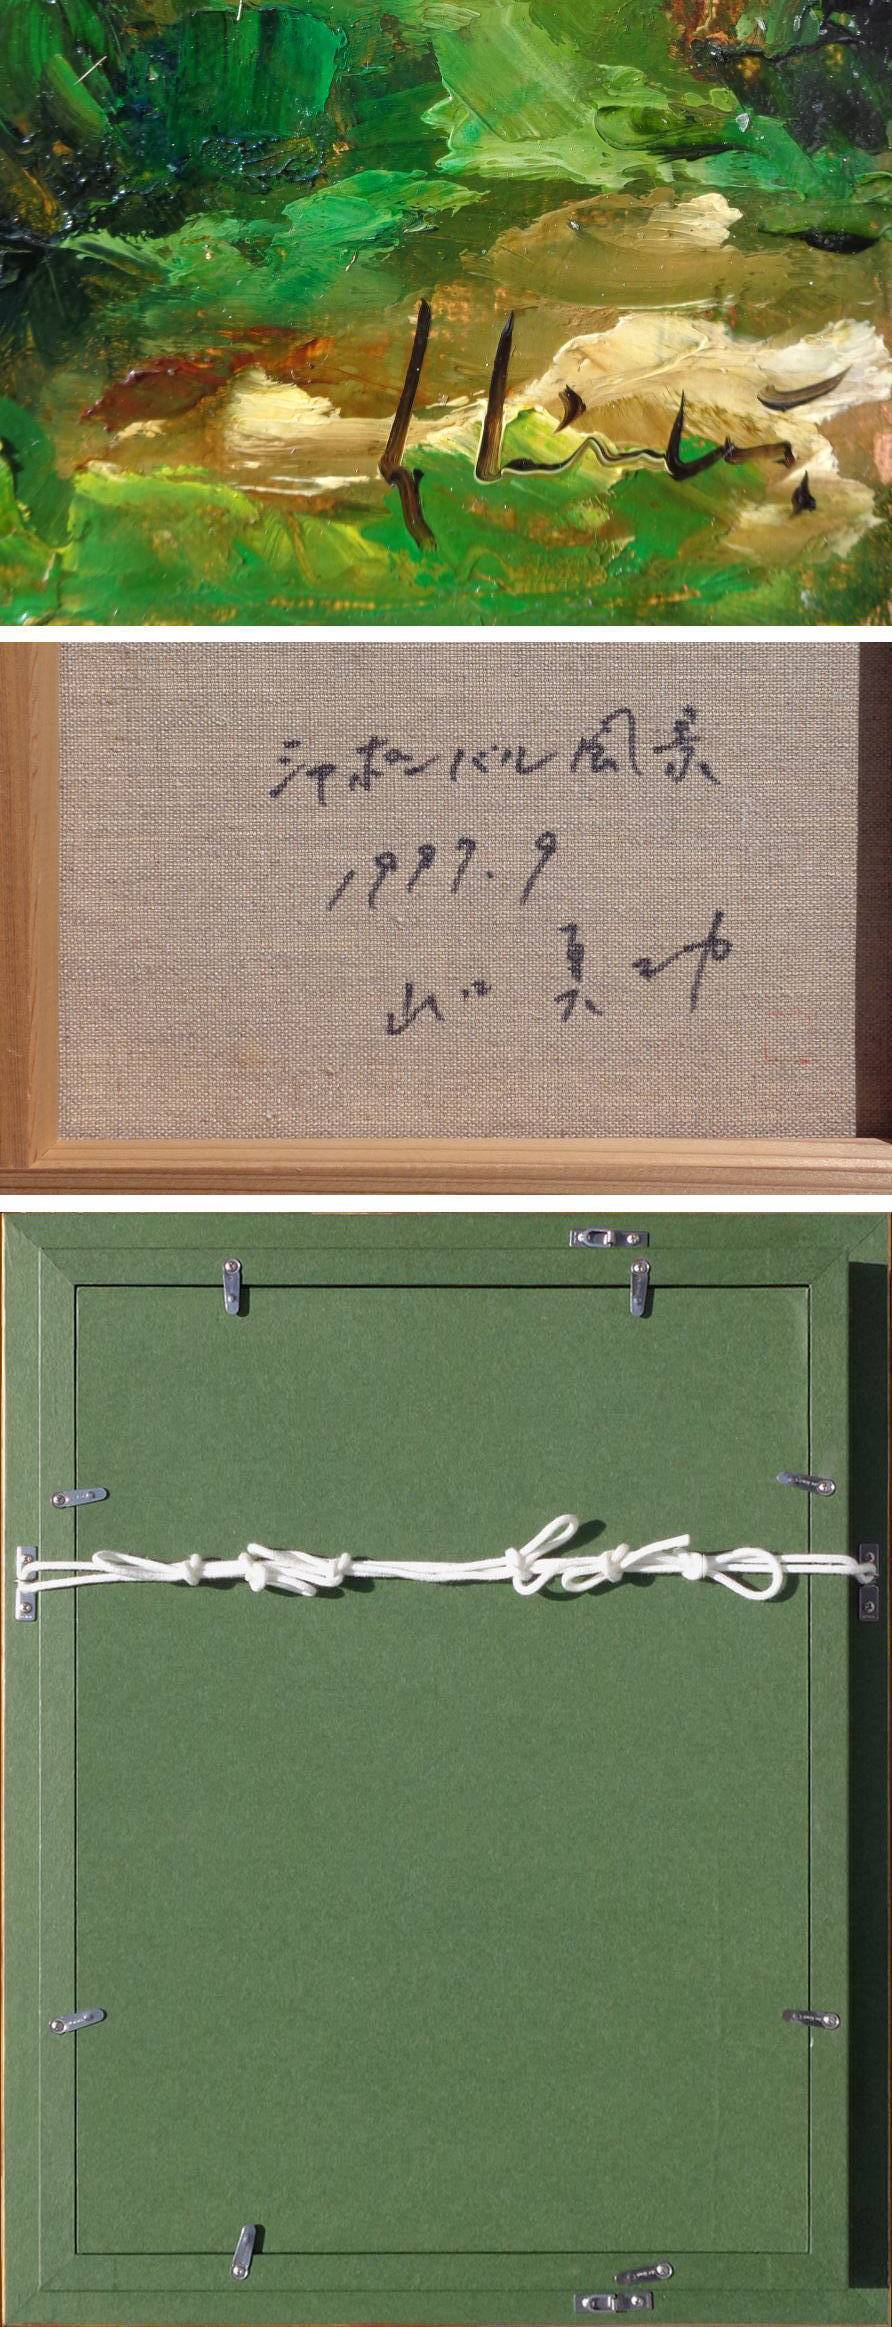 シャポンバル風景
1997.9
山口 真功